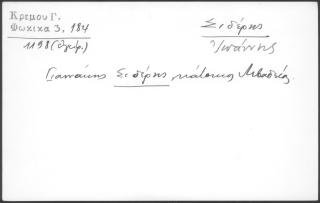 Κρεμου Γ.
Φωκικα 3, 184
1198 (
Σιδέρης
Ἰωάννης
Γιαννάκης Σιδέρης κάτοικος Λιβαδειάς.